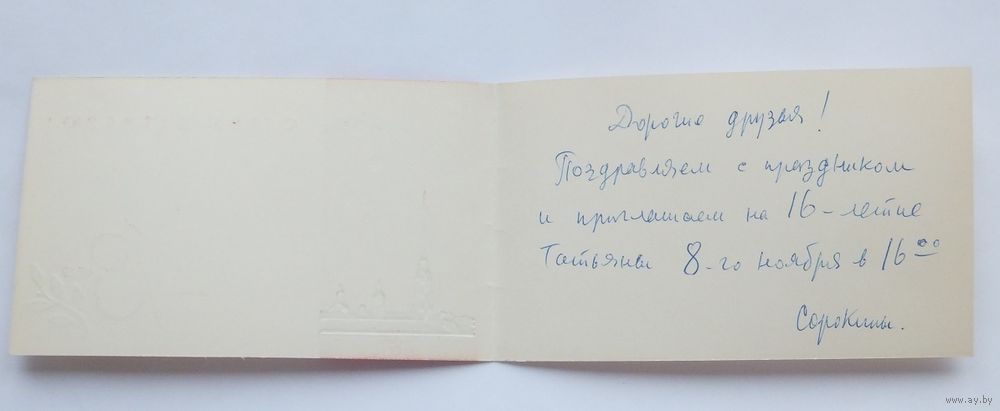 Дорогие друзья!
Поздравляем с праздником
и приглашаем на 16-летие
Татьяны 8-го ноября в 16⁰⁰
Сорокины.
www.ay.by